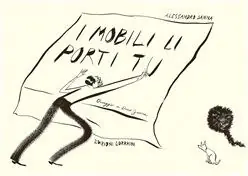 ALESSANDRO SANNA
I MOBILI LI
PORTI TU
Omaggio a
EDIZIONI CORRAINI